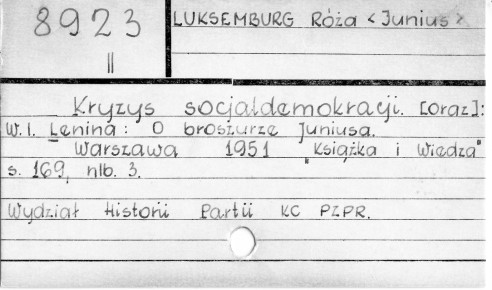 8923
II
LUKSEMBURG Róża <Junius>
Kryzys socjaldemokracji. [oraz]:
W.I. Lenina: O broszurze Juniusa.
Warszawa 1951 "Książka i Wiedza"
s. 169, nlb. 3.
Wydział Historii Partii KC PZPR.